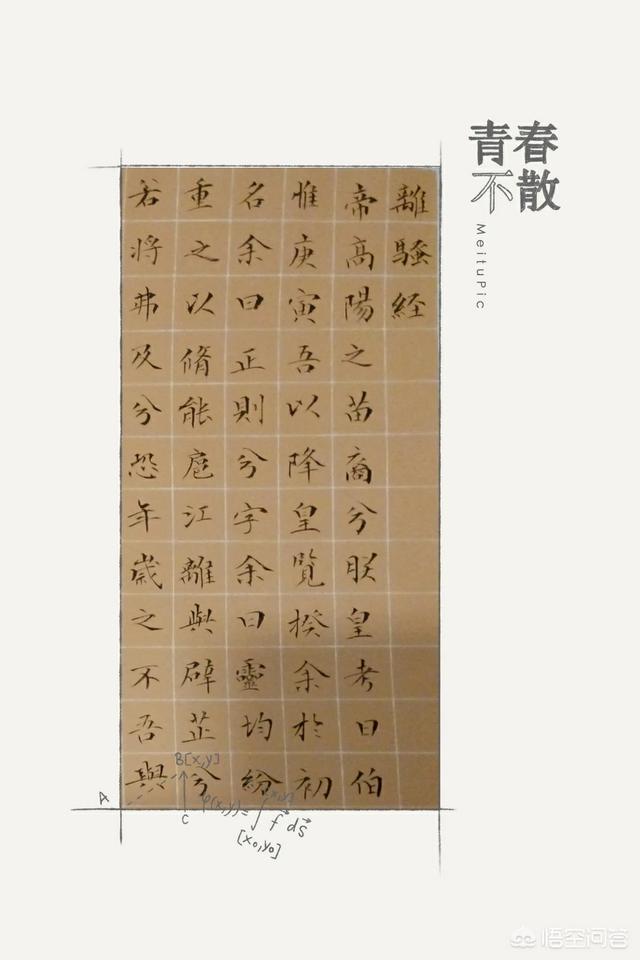 青春
不散
MeituPic
離騷経
帝髙陽之苗裔兮朕皇考曰伯
惟庚寅吾以降皇覽揆余於初
名余曰正則兮字余曰靈均紛
重之以脩能扈江離與辟芷兮
若將弗及兮恐年歲之不吾與
B[x,y]
A
C
φ(x,y)=∫f⃗ds⃗
[x₀,y₀]
悟空问答